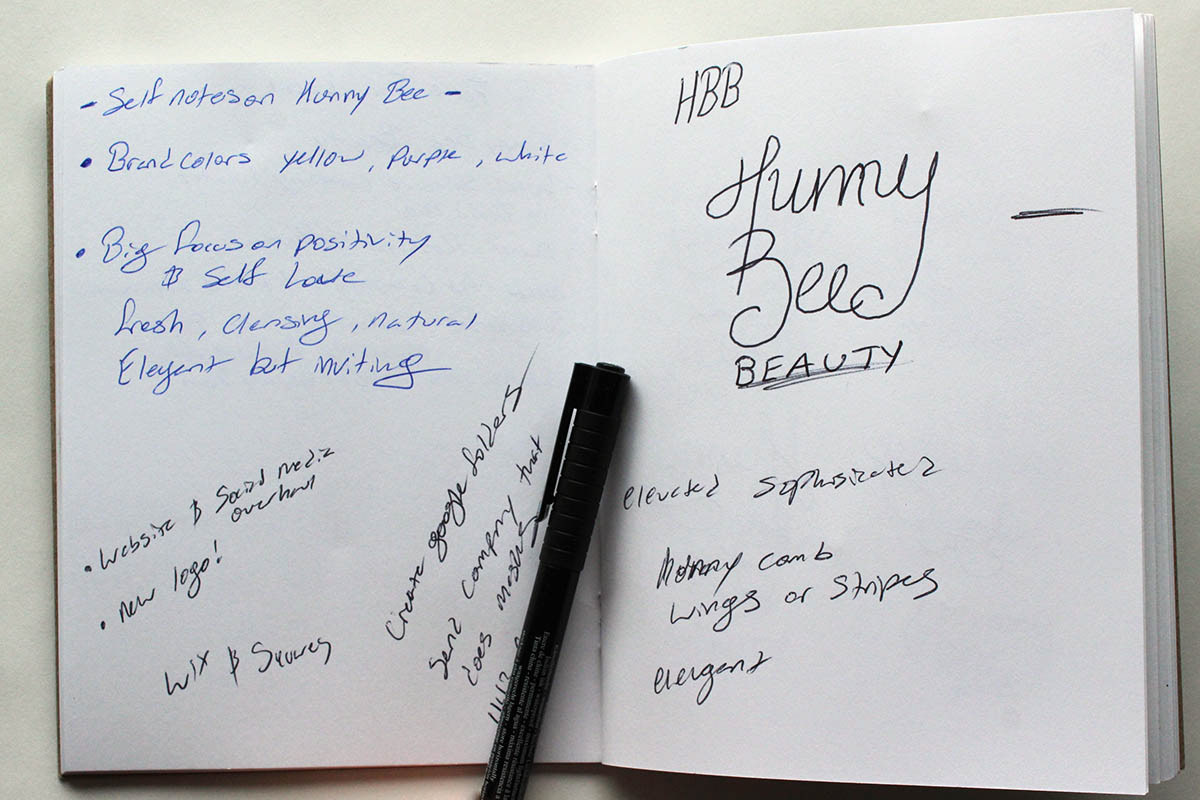 - Self notes on Hunny Bee -
• Brand colors yellow, purple, white
• Big focus on positivity
& Self Love
fresh, clensing, natural
Elegent but inviting
• Website & Social media
overhaul
• new logo!
Wix &
Create google folders
Send company that
does
HBB
Hunny
Bee
BEAUTY
elevated Sophisicated
Hunny comb
wings or Stripes
elegent